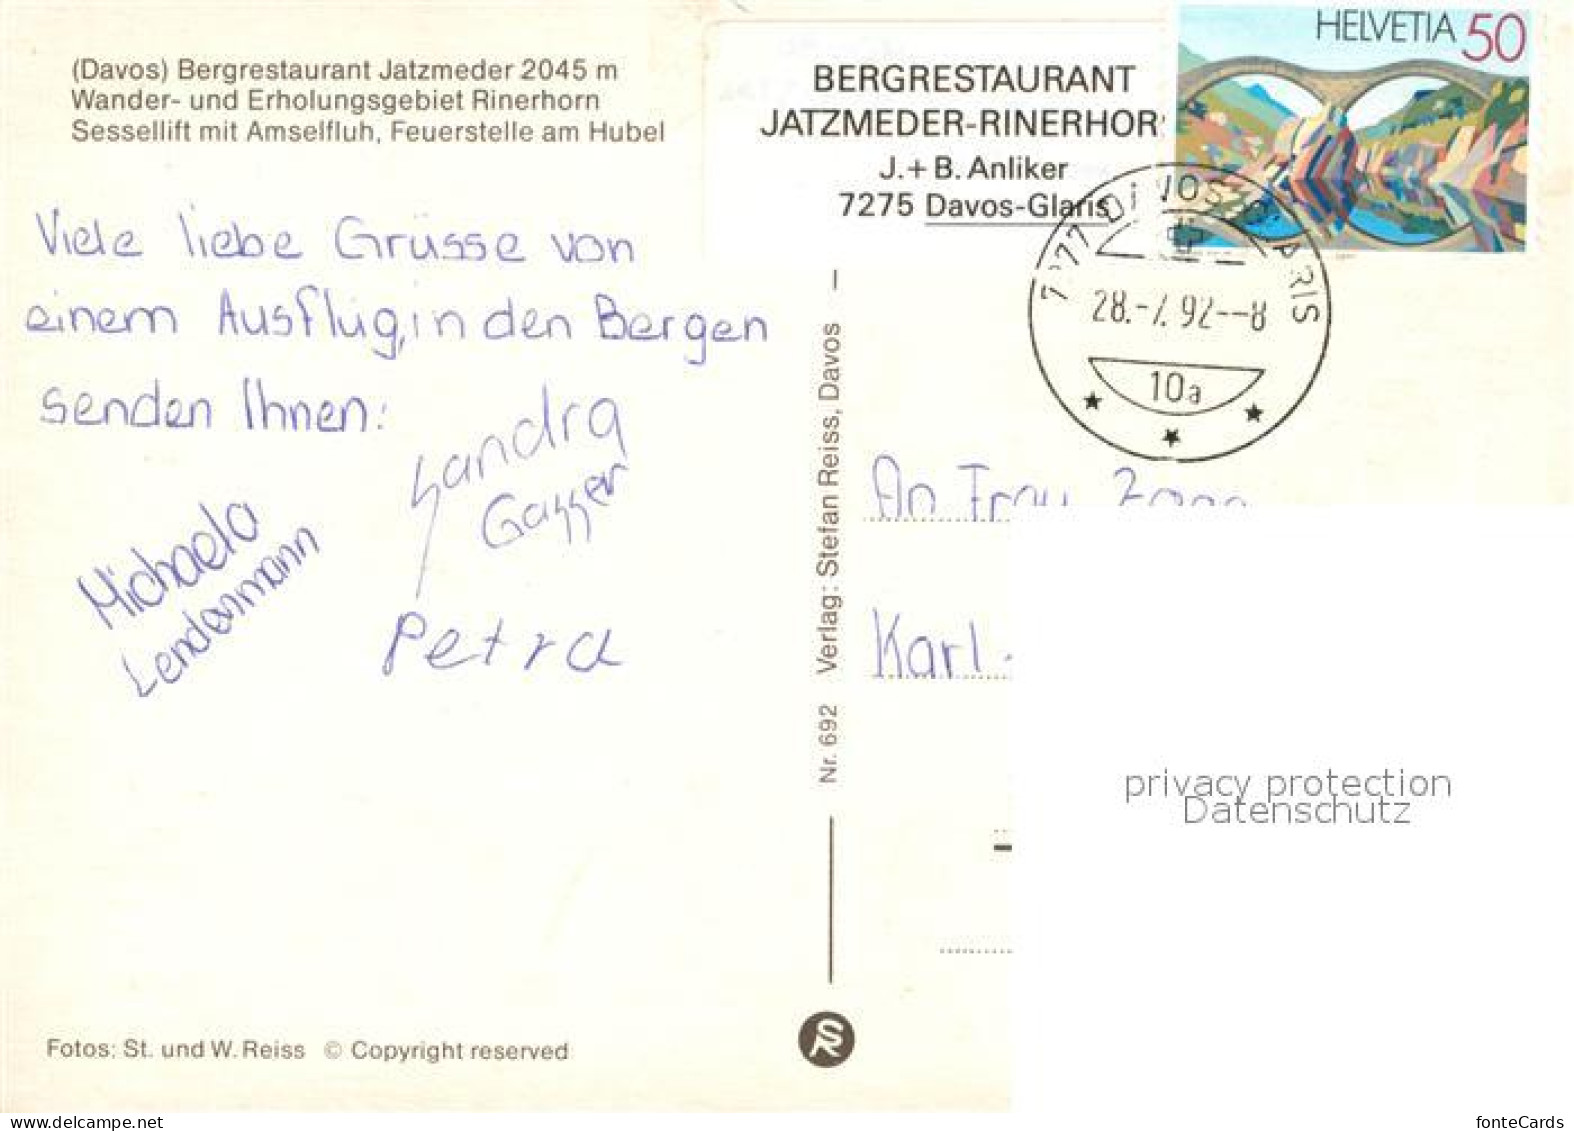 (Davos) Bergrestaurant Jatzmeder 2045 m
Wander- und Erholungsgebiet Rinerhorn
Sessellift mit Amselfluh, Feuerstelle am Hubel
Viele liebe Grüsse von
einem Ausflug, in den Bergen
senden Ihnen:
Sandra
Gasser
Michaela
Lendenmann
Petra
Fotos: St. und W. Reiss © Copyright reserved
Nr. 692 Verlag: Stefan Reiss, Davos
SR
BERGRESTAURANT
JATZMEDER-RINERHOR
J. + B. Anliker
7275 Davos-Glaris
HELVETIA 50
28.-7.92--8
10a
An Frau
Karl
privacy protection
Datenschutz
www.delcampe.net
fonteCards